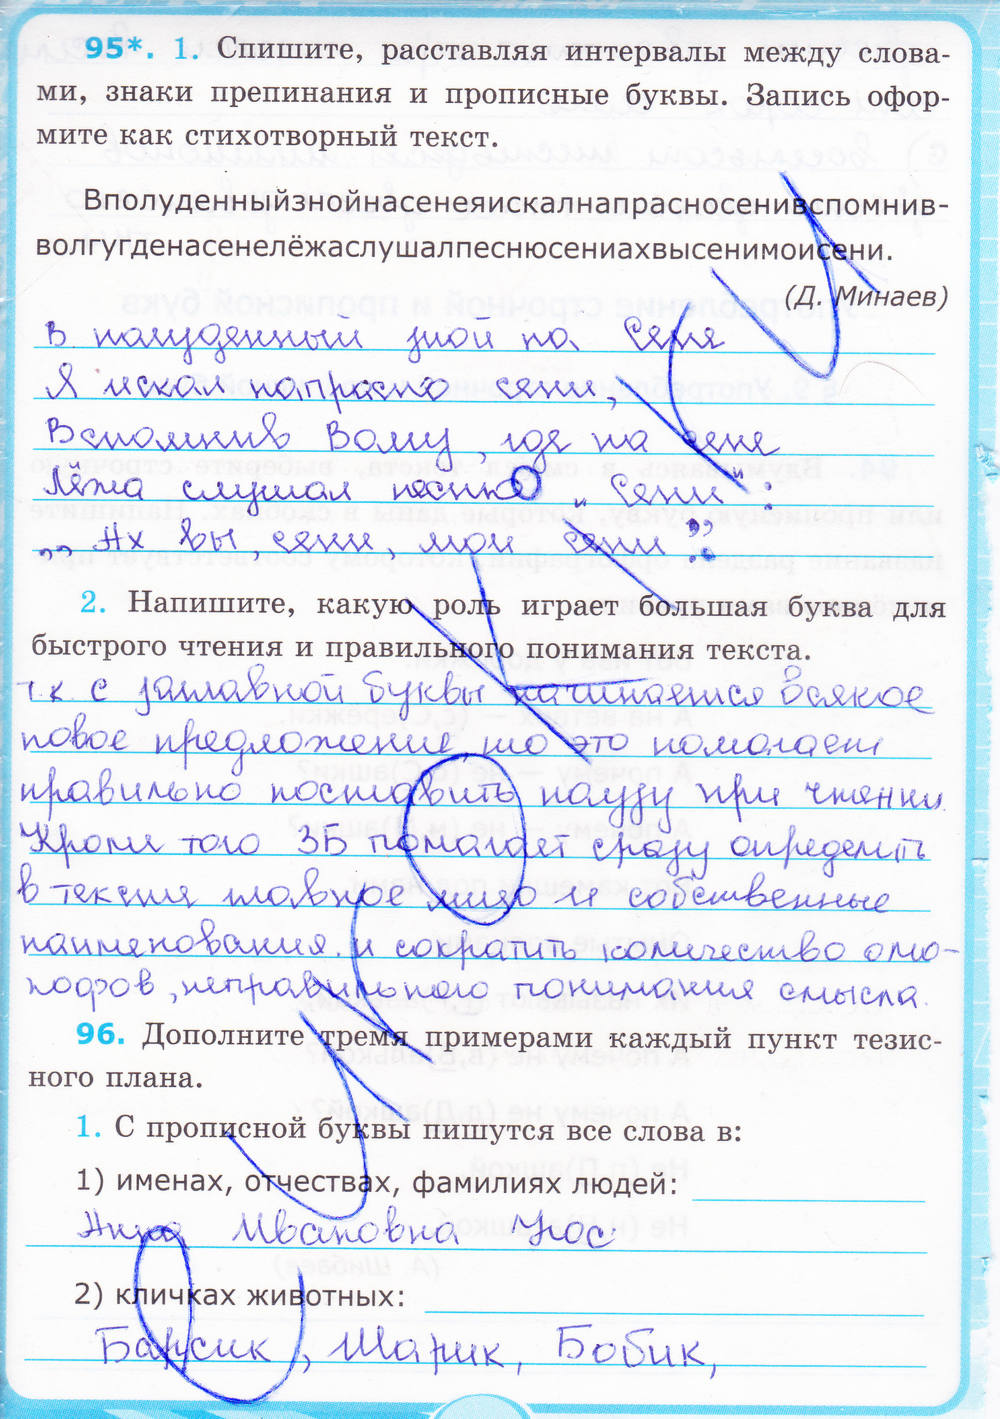 95*. 1. Спишите, расставляя интервалы между слова-
ми, знаки препинания и прописные буквы. Запись офор-
мите как стихотворный текст.
Вполуденныйзнойнасенеяискалнапрасносенивспомнив-
волгугденасенелёжаслушалпеснюсениахвысенимоисени.
(Д. Минаев)
В полуденный зной на Сене
Я искал напрасно сени,
Вспомнив Волгу, где на сене
Лёжа слушал песню „Сени“:
„Ах вы, сени, мои сени“.
2. Напишите, какую роль играет большая буква для
быстрого чтения и правильного понимания текста.
т.к. с заглавной буквы начинается всякое
новое предложение то это помогает
правильно поставить паузу при чтении.
Кроме того ЗБ помогает сразу определить
в тексте главное лицо и собственные
наименования. и сократить количество омо-
нофов, неправильного понимания смысла.
96. Дополните тремя примерами каждый пункт тезис-
ного плана.
1. С прописной буквы пишутся все слова в:
1) именах, отчествах, фамилиях людей:
Анна Ивановна Урос
2) кличках животных:
Барсик, Шарик, Бобик,